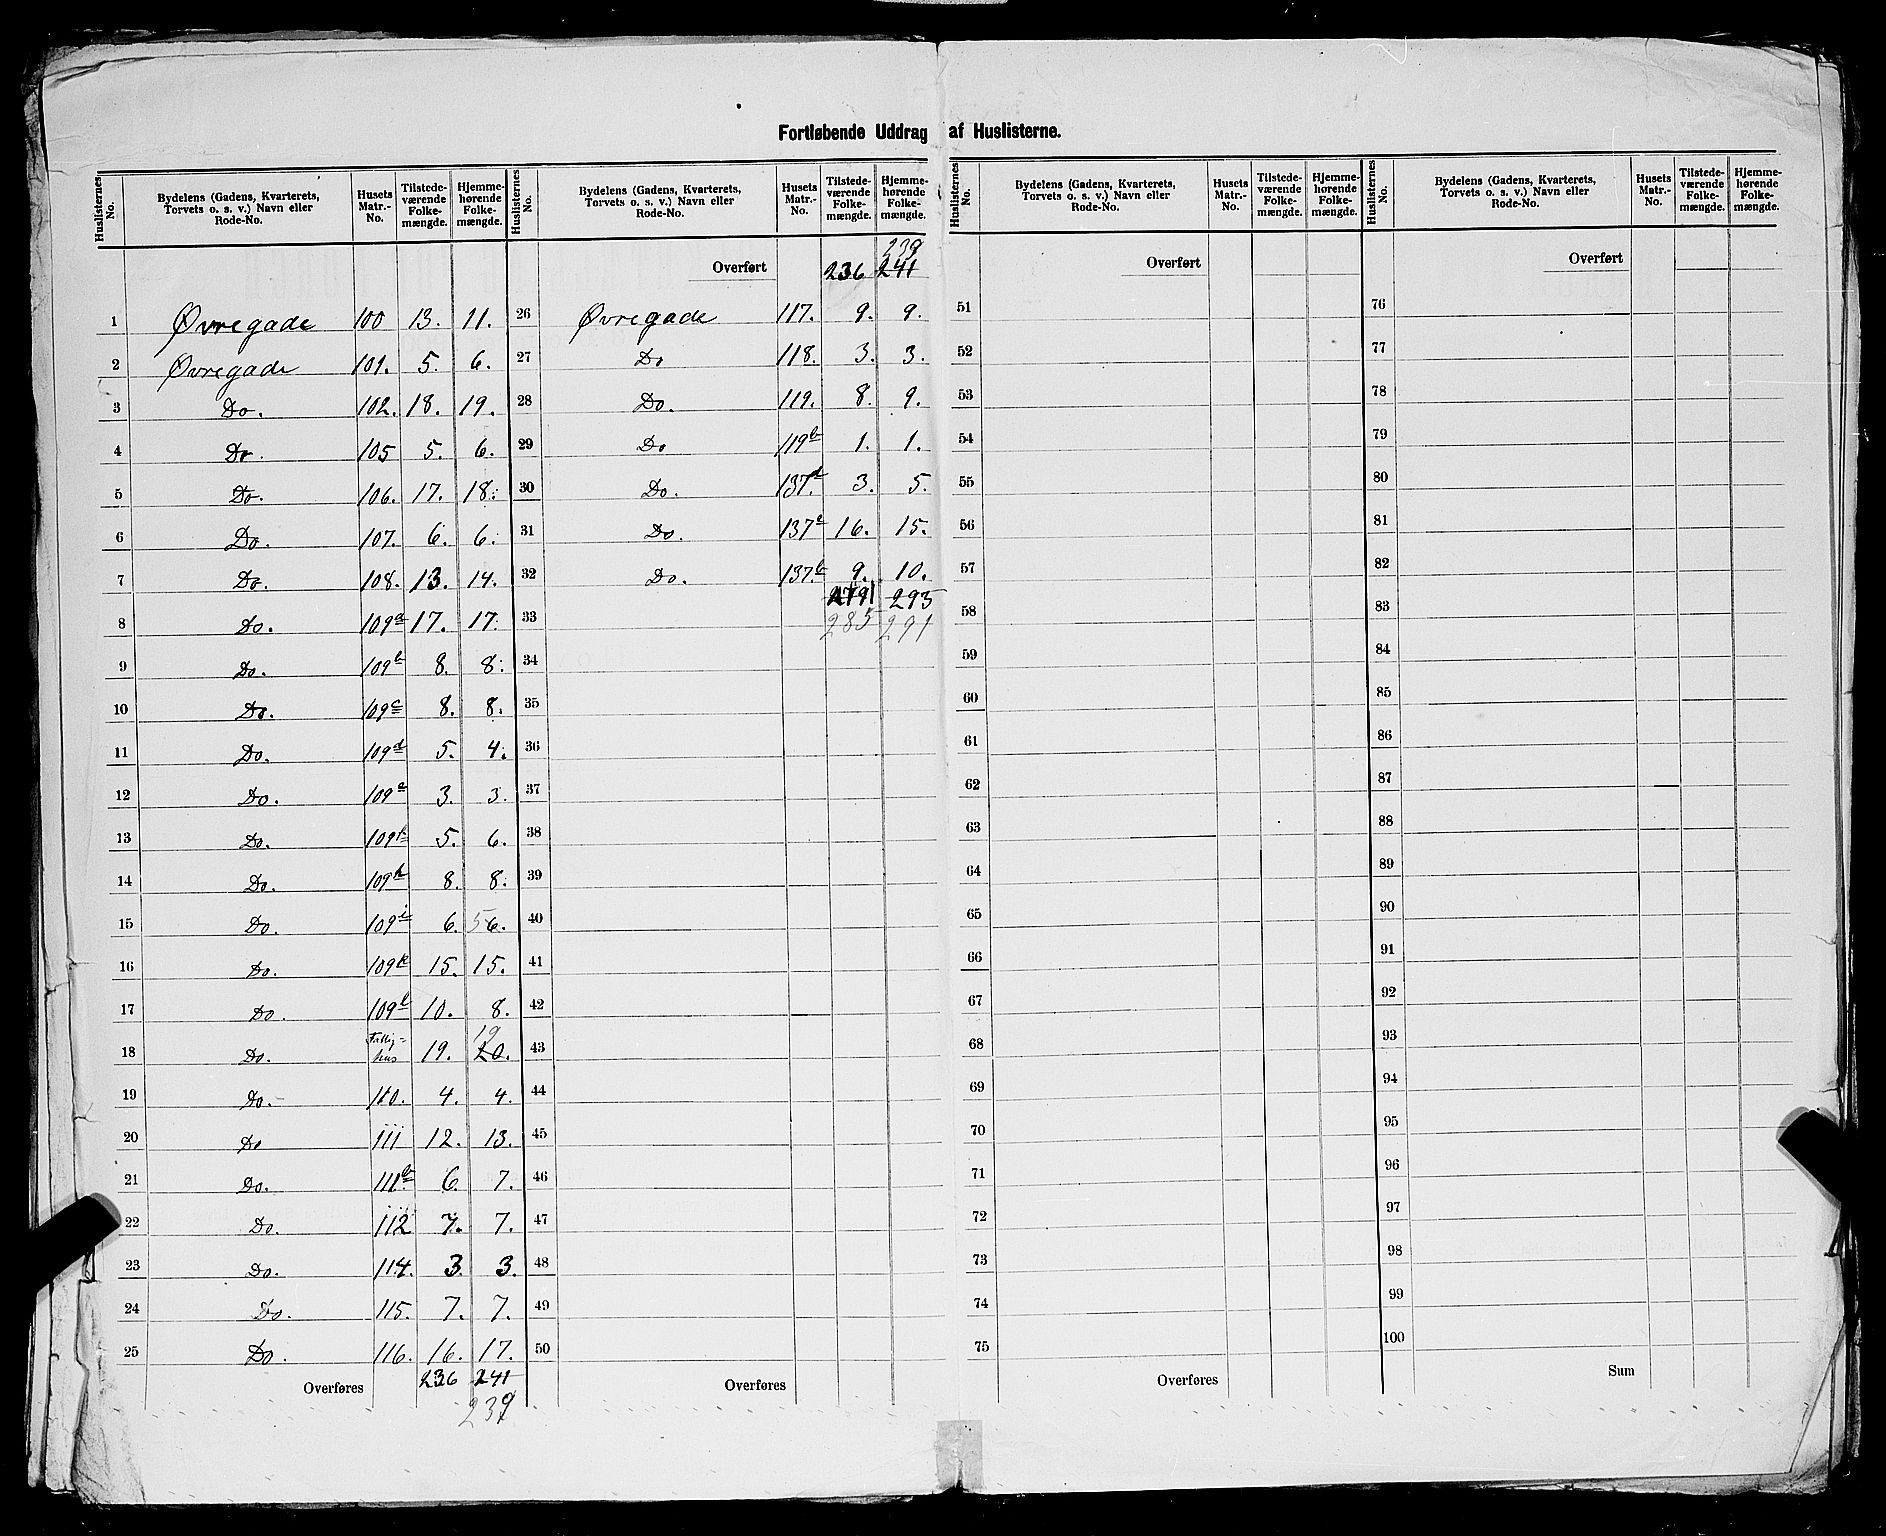 Fortløbende Uddrag af Huslisterne.
Huslisternes No. | Bydelens (Gadens, Kvarterets, Torvets o. s. v.) Navn eller Rode-No. | Husets Matr.-No. | Tilstede-værende Folke-mængde. | Hjemme-hørende Folke-mængde.
1 Øvregade 100 13. 11.
2 Øvregade 101. 5. 6.
3 Do. 102. 18. 19.
4 Do. 105 5. 6.
5 Do. 106. 17. 18.
6 Do. 107. 6. 6.
7 Do. 108. 13. 14.
8 Do. 109a 17. 17.
9 Do. 109b 8. 8.
10 Do. 109c 8. 8.
11 Do. 109d 5. 4.
12 Do. 109e 3. 3.
13 Do. 5. 6.
14 Do. 109h 8. 8.
15 Do. 109i 6. 5 6.
16 Do. 109k 15. 15.
17 Do. 109l 10. 8.
18 Do. Fattig=hus 19. 19 20.
19 Do. 110. 4. 4.
20 Do 111 12. 13.
21 Do. 111b 6. 7.
22 Do. 112 7. 7.
23 Do. 114. 3. 3.
24 Do. 115. 7. 7.
25 Do. 116. 16. 17.
Overføres 236 241
239
Huslisternes No. | Bydelens (Gadens, Kvarterets, Torvets o. s. v.) Navn eller Rode-No. | Husets Matr.-No. | Tilstede-værende Folke-mængde. | Hjemme-hørende Folke-mængde.
239
Overført 236 241
26 Øvregade 117. 9. 9.
27 Do 118. 3. 3.
28 Do. 119. 8. 9.
29 Do 119b 1. 1.
30 Do. 137d 3. 5.
31 Do. 137e 16. 15.
32 Do. 137b 9. 10.
293
33 285 291
34
35
36
37
38
39
40
41
42
43
44
45
46
47
48
49
50
Overføres
Huslisternes No. | Bydelens (Gadens, Kvarterets, Torvets o. s. v.) Navn eller Rode-No. | Husets Matr.-No. | Tilstede-værende Folke-mængde. | Hjemme-hørende Folke-mængde.
Overført
51
52
53
54
55
56
57
58
59
60
61
62
63
64
65
66
67
68
69
70
71
72
73
74
75
Overføres
Huslisternes No. | Bydelens (Gadens, Kvarterets, Torvets o. s. v.) Navn eller Rode-No. | Husets Matr.-No. | Tilstede-værende Folke-mængde. | Hjemme-hørende Folke-mængde.
Overført
76
77
78
79
80
81
82
83
84
85
86
87
88
89
90
91
92
93
94
95
96
97
98
99
100
Sum